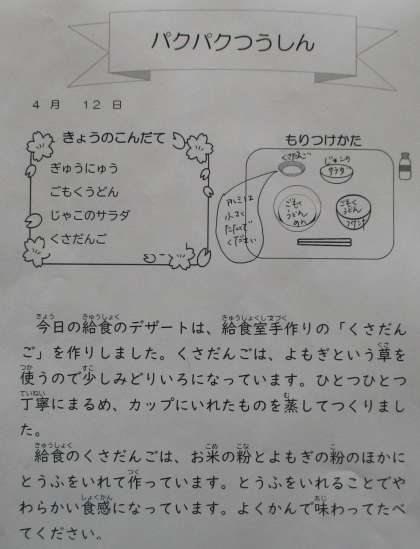 パクパクつうしん
4月 12日
きょうのこんだて
ぎゅうにゅう
ごもくうどん
じゃこのサラダ
くさだんご
もりつけかた
くさだんご
じゃこの
サラダ
ごもく
うどん
めん
ごもく
うどん
アルミは
小さく
たたんで
ください
今日の給食のデザートは、給食室手作りの「くさだん
ご」を作りました。くさだんごは、よもぎという草を
使うので少しみどりいろになっています。ひとつひとつ
丁寧にまるめ、カップにいれたものを蒸してつくりまし
た。
給食のくさだんごは、お米の粉とよもぎの粉のほかに
とうふをいれて作っています。とうふをいれることでや
わらかい食感になっています。よくかんで味わってたべ
てください。